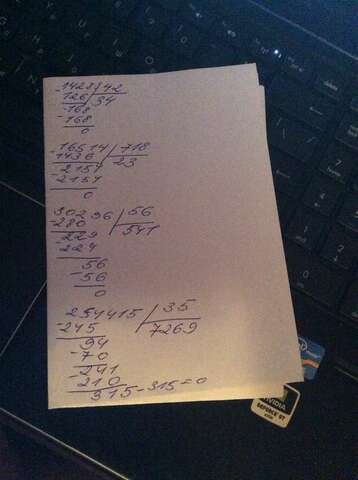 -1428|42
126 34
-168
-168
0
-16514|718
1436 23
-2154
-2154
0
30296|56
-280 541
-229
224
56
-56
0
254415|35
-245 7269
94
-70
241
210
315-315=0
NVIDIA
GEFORCE GT